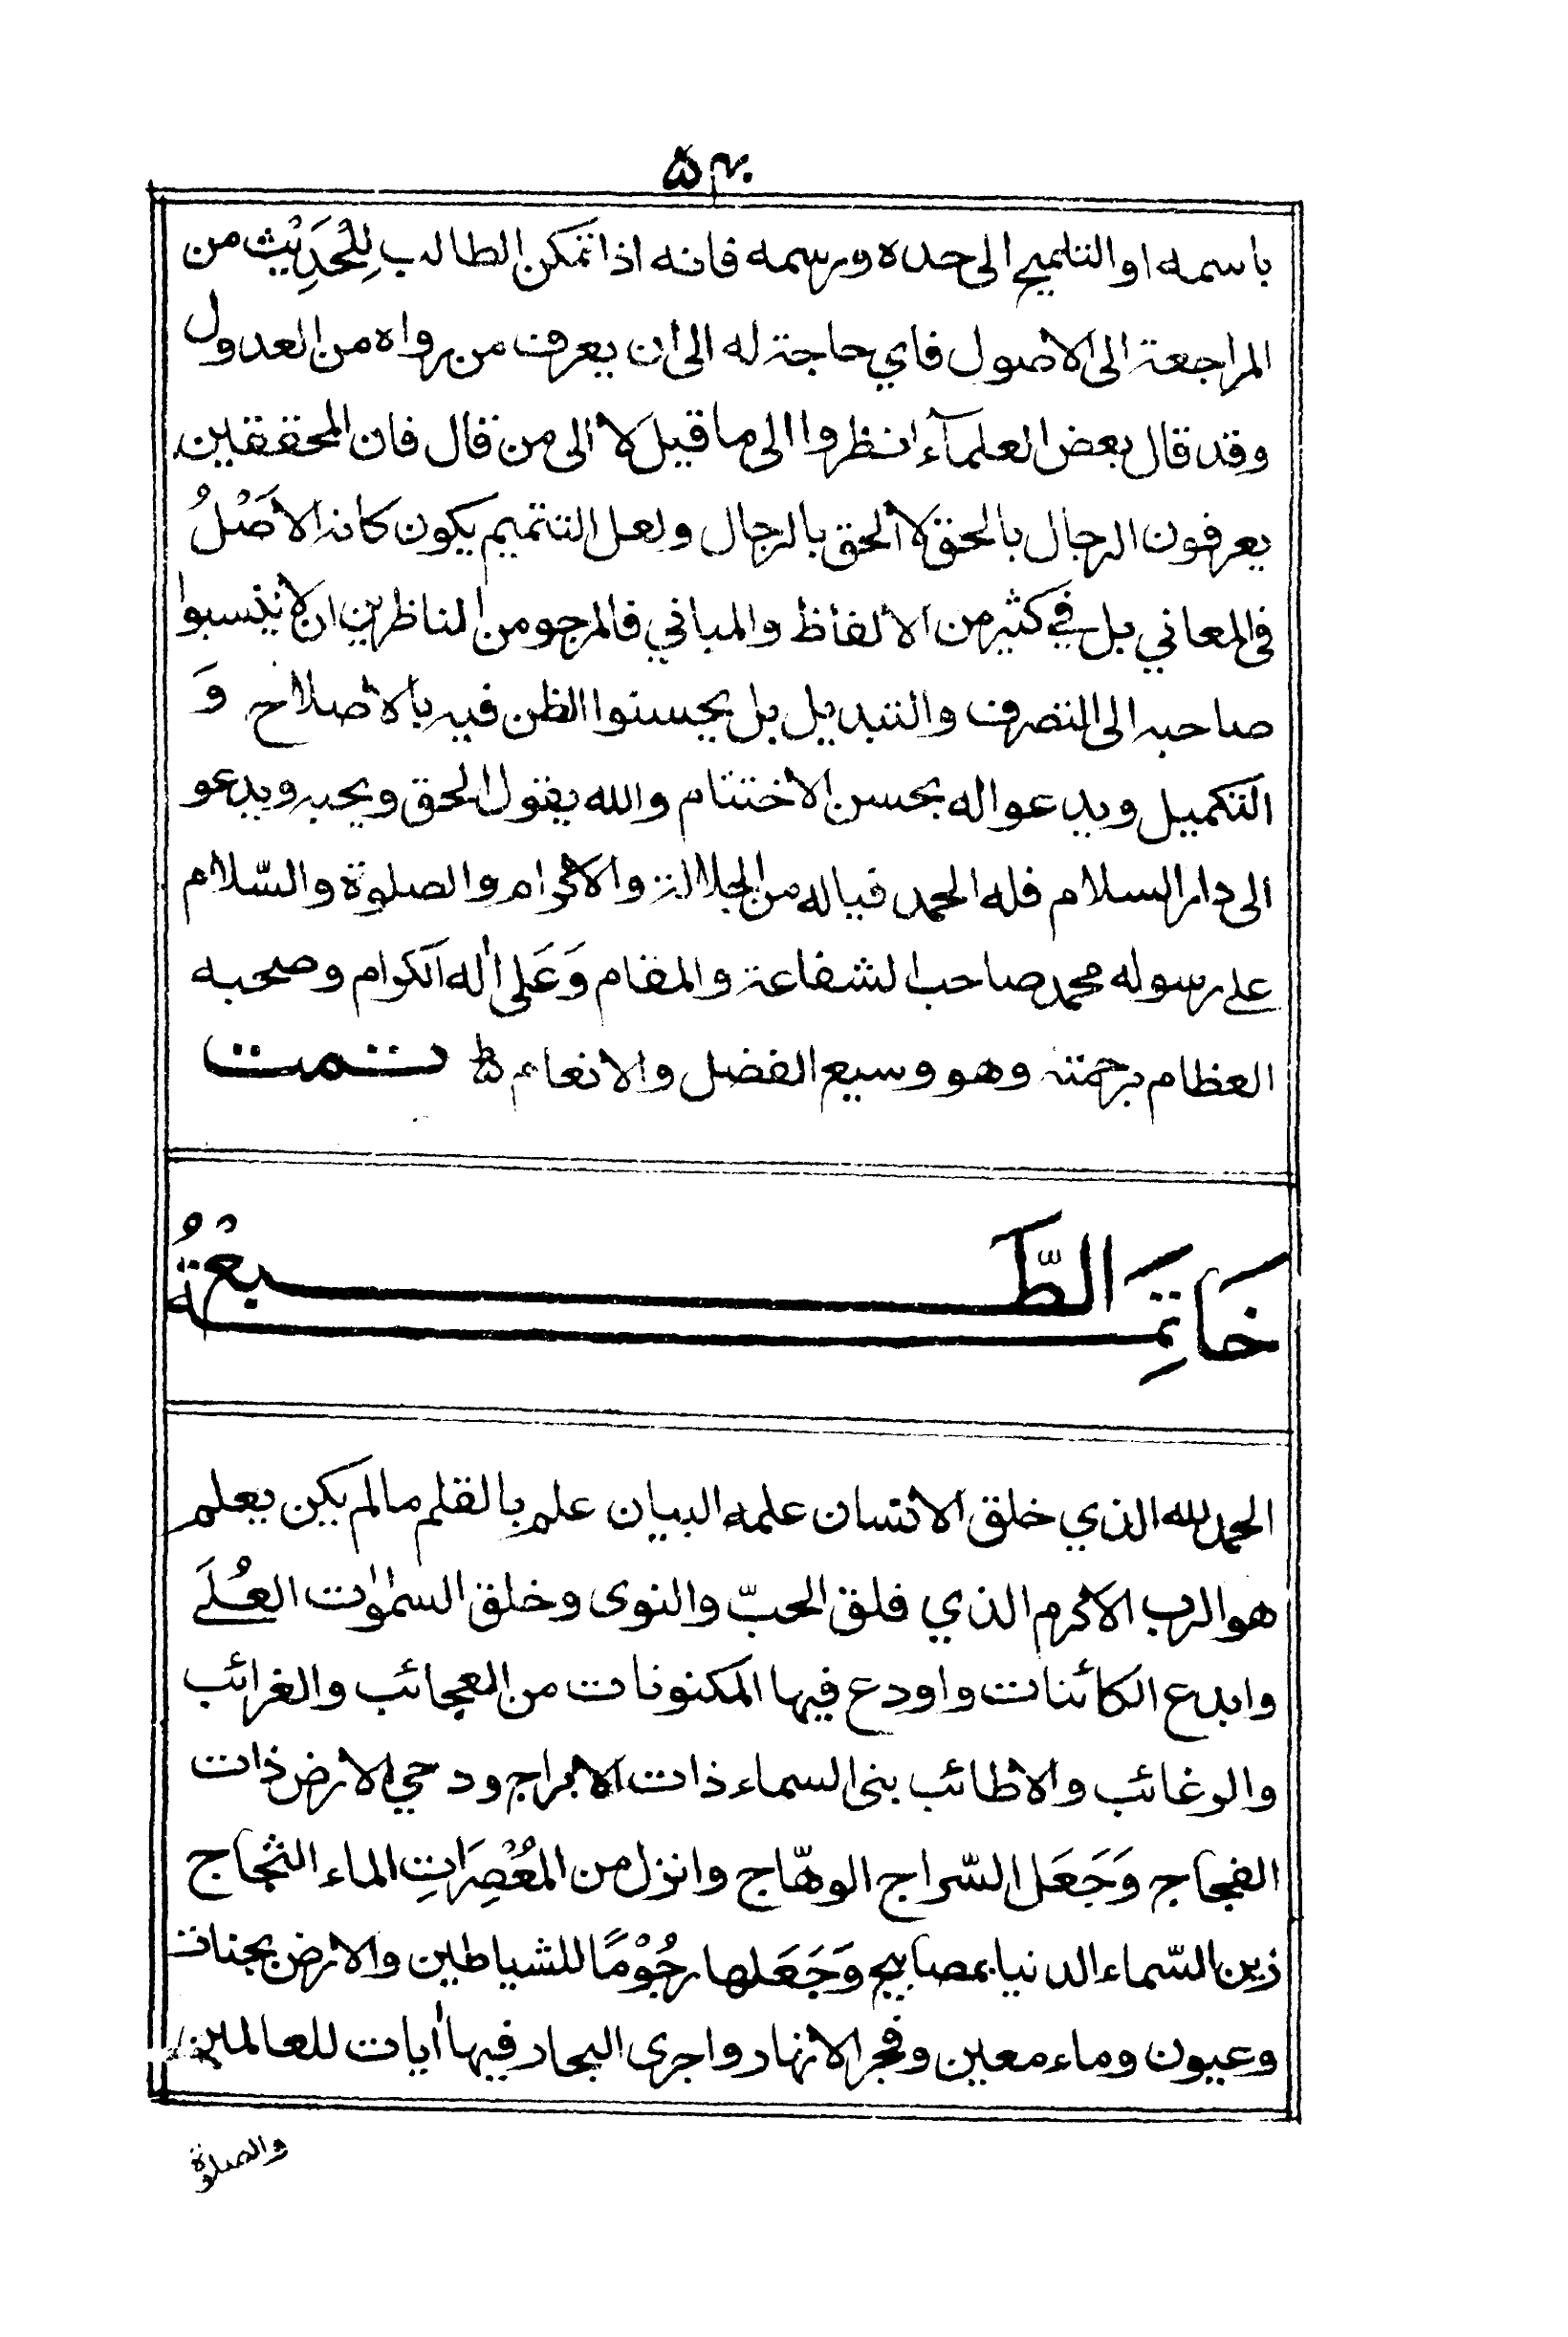 ۵۴۰
باسمه او التلميح الى حده ورسمه فانه اذا تمكن الطالب لِلْحَدِيْث من
المراجعة الى الاصول فاي حاجة له الى ان يعرف من رواه من العدول
وقد قال بعض العلمآء انظروا الى ما قيل لا الى من قال فان المحققين
يعرفون الرجال بالحق لا الحق بالرجال ولعل التتميم يكون كانه الاَصْلُ
في المعاني بل في كثير من الالفاظ والمباني فالمرجو من الناظرين ان لا ينسبوا
صاحبه الى التصرف والتبديل بل يحسنوا الظن فيه بالاصلاح وَ
التكميل ويدعوا له بحسن الاختتام والله يقول الحق ويحبه ويدعو
الى دار السلام فله الحمد فياله من الجلالة والاكرام والصلوة والسّلام
على رسوله محمد صاحب الشفاعة والمقام وَعَلى اٰله الكرام وصحبه
العظام برحمته وهو وسيع الفضل والانعام تمت
خَاتِمَة الطَّبْعَةُ
الحمد لله الذي خلق الانسان علمه البيان علم بالقلم ما لم يكن يعلم
هو الرب الاكرم الذي فلق الحبّ والنوى وخلق السمٰوٰت العُلَى
وابدع الكائنات واودع فيها المكنونات من العجائب والغرائب
والرغائب والاطائب بنى السماء ذات الابراج ودحي الارض ذات
الفجاج وَجَعَل السّراج الوهّاج وانزل من المُعْصِرَاتِ الماء الثجاج
زين السّماء الدنيا بمصابيح وَجَعَلها رجُوْمًا للشياطين والارض بجنات
وعيون وماء معين وفجر الانهار واجرى البحار فيها اٰيات للعالمين
والصلوة